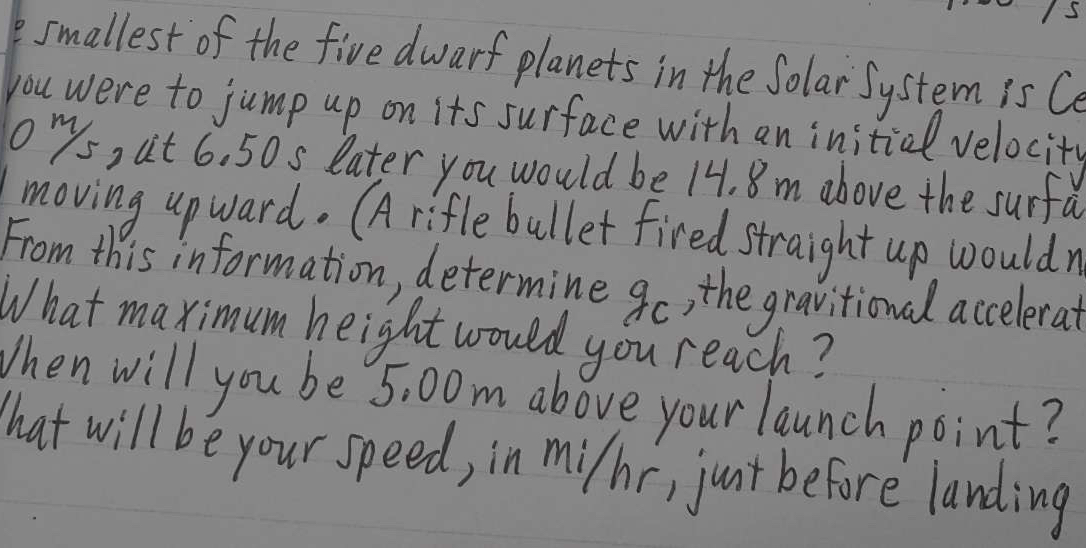 /s
smallest of the five dwarf planets in the Solar System is Ce
you were to jump up on its surface with an initial velocity
0 m/s, at 6.50 s later you would be 14.8 m above the surfa
moving upward. (A rifle bullet fired straight up would n
From this information, determine gc, the gravitional accelerat
What maximum height would you reach?
When will you be 5.00 m above your launch point?
What will be your speed, in mi/hr, just before landing